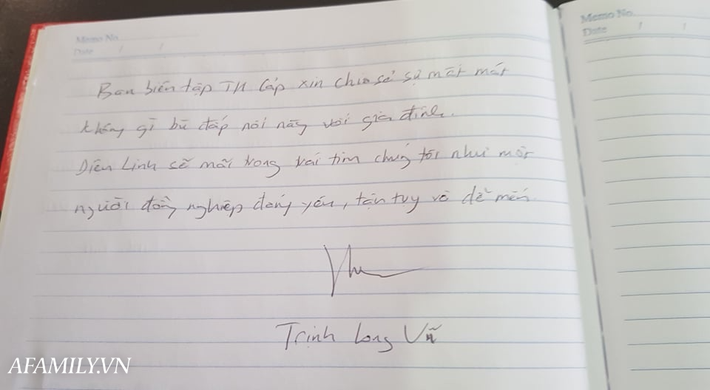 Memo No.
Date / /
Ban biên tập TH Cáp xin chia sẻ sự mất mát
không gì bù đắp nổi này với gia đình.
Diệu Linh sẽ mãi trong trái tim chúng tôi như một
người đồng nghiệp đáng yêu, tận tuỵ và dễ mến
Trịnh Long Vũ
Memo No.
Date / /
AFAMILY.VN